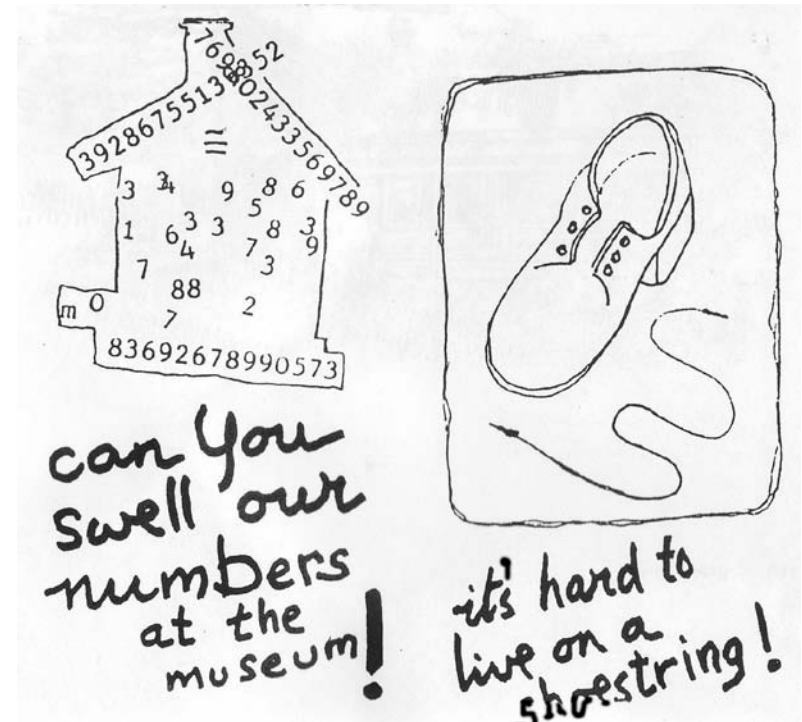 769852
39286755138024335697​89
=
3 34 9 8 6
5
1 6 3 3 8 3
4 7 9
7 3
88
m O 7 2
83692678990573
can you
swell our
numbers
at the
museum!
it's hard to
live on a
shoestring!